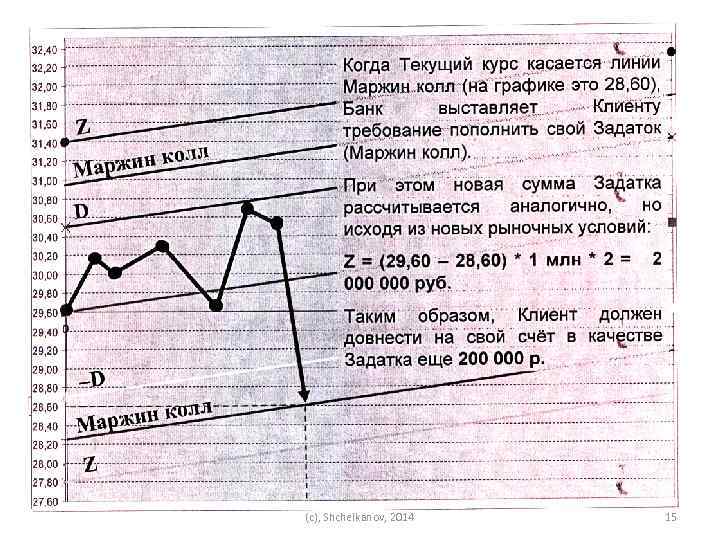 32,40
32,20
32,00
31,80
31,60
31,40
31,20
31,00
30,80
30,60
30,40
30,20
30,00
29,80
29,60
29,40
29,20
29,00
28,80
28,60
28,40
28,20
28,00
27,80
27,60
0
Z
Маржин колл
D
–D
Маржин колл
Z
Когда Текущий курс касается линии
Маржин колл (на графике это 28,60),
Банк выставляет Клиенту
требование пополнить свой Задаток
(Маржин колл).
При этом новая сумма Задатка
рассчитывается аналогично, но
исходя из новых рыночных условий:
Z = (29,60 – 28,60) * 1 млн * 2 = 2
000 000 руб.
Таким образом, Клиент должен
довнести на свой счёт в качестве
Задатка еще 200 000 р.
(c), Shchelkanov, 2014
15